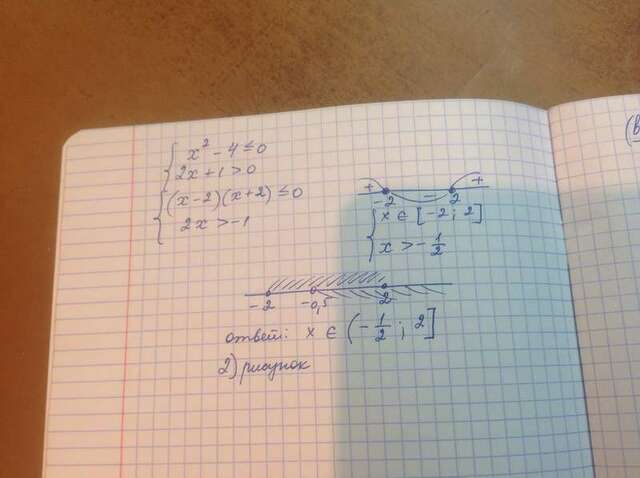 { x² - 4 ≤ 0
2x + 1 > 0
{ (x-2)(x+2) ≤ 0
2x > -1
+ - +
-2 2
{ x ∈ [-2; 2]
x > -1/2
-2 -0,5 2
ответ: x ∈ (-1/2; 2]
2) рисунок
(в